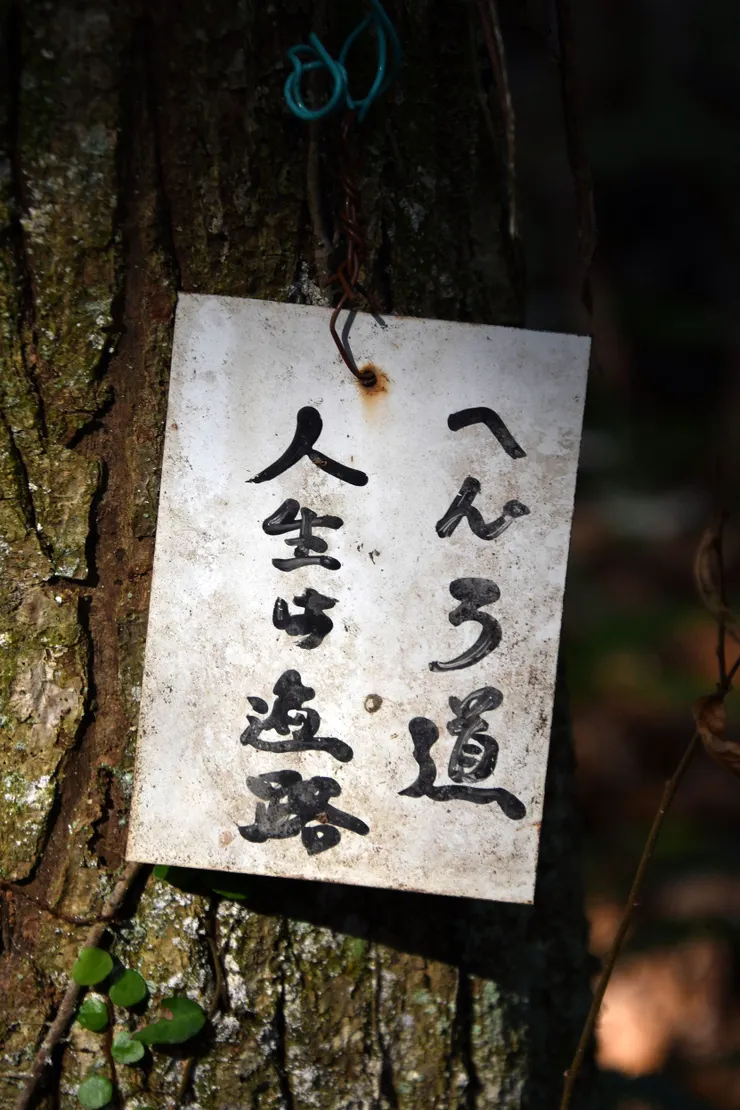 へんろ道
人生は遍路